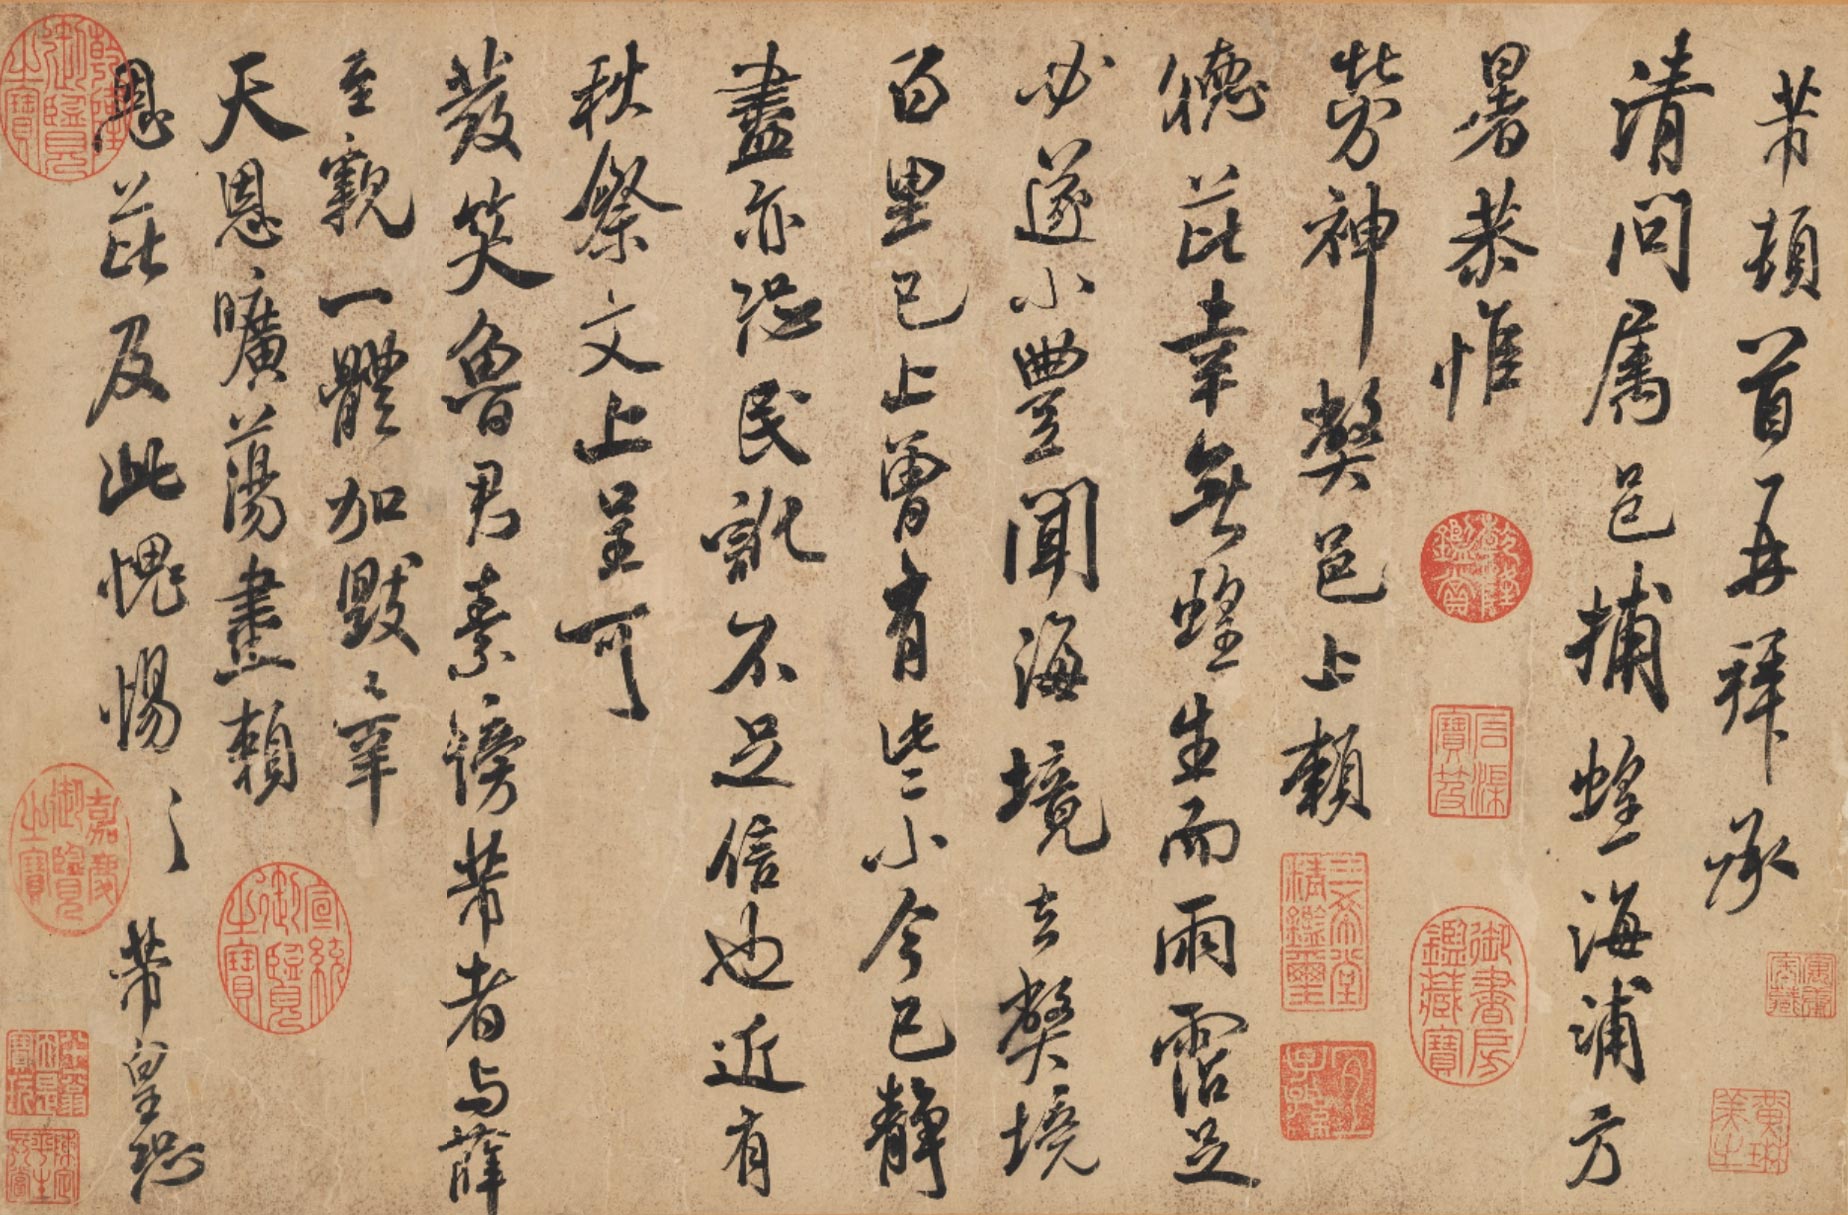 芾頓首再拜承
清問屬邑捕蝗海浦方
暑恭惟
勞神弊邑上賴
德芘幸無蝗生而雨霑足
必遂小豐聞海境去弊境
百里已上曾有些小今已靜
盡亦恐民訛不足信也近有
秋祭文上呈可
發笑魯君素謗芾者与薛
至親一體加毀〻幸
天恩曠蕩盡賴
恩芘及此愧惕〻芾皇恐
黃琳美之
乾隆鑑賞
石渠寶笈
御書房鑑藏寶
三希堂精鑑璽
宜子孫
宣統御覽之寶
乾隆御覽之寶
嘉慶御覽之寶